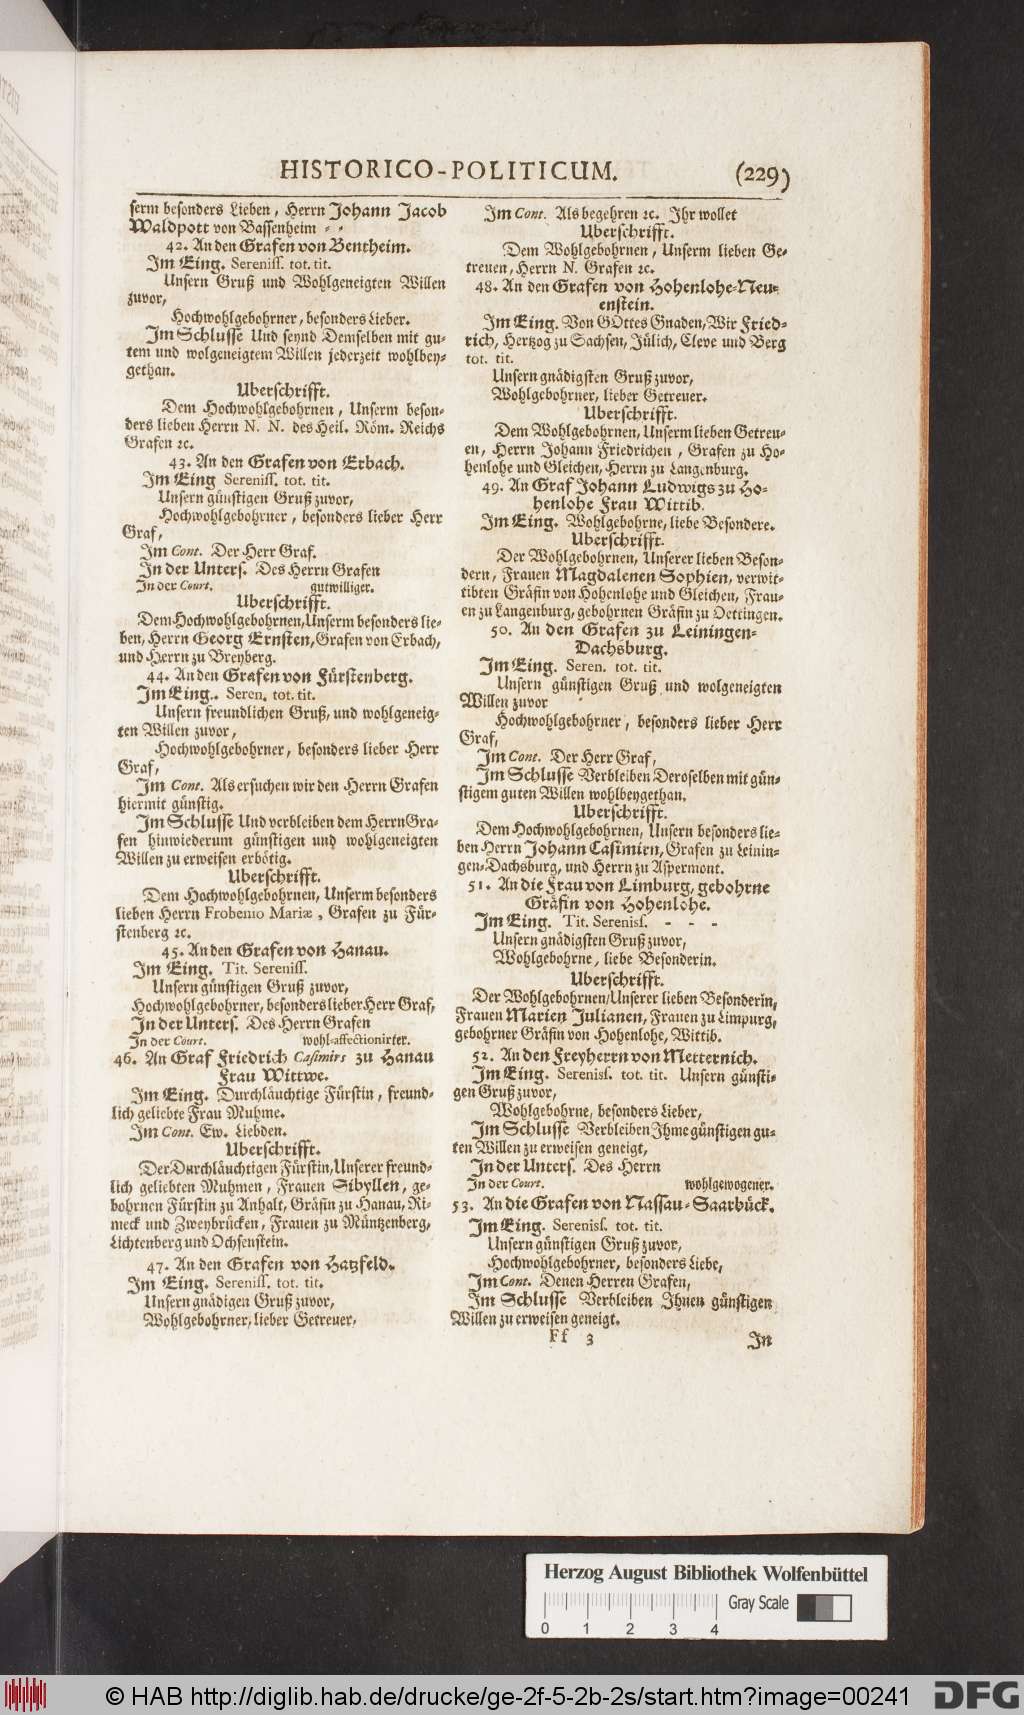 HISTORICO-POLITICUM. (229)
serm besonders Lieben, Herrn Johann Jacob
Waldpott von Bassenheim - -
42. An den Grafen von Bentheim.
Im Eing. Sereniss. tot. tit.
Unsern Gruß und Wohlgeneigten Willen
zuvor,
Hochwohlgebohrner, besonders Lieber.
Im Schlusse Und seynd Demselben mit gu-
tem und wolgeneigtem Willen jederzeit wohlbey-
gethan.
Uberschrifft.
Dem Hochwohlgebohrnen, Unserm beson-
ders lieben Herrn N. N. des Heil. Röm. Reichs
Grafen ꝛc.
43. An den Grafen von Erbach.
Im Eing Sereniss. tot. tit.
Unsern günstigen Gruß zuvor,
Hochwohlgebohrner, besonders lieber Herr
Graf,
Im Cont. Der Herr Graf.
In der Unters. Des Herrn Grafen
In der Court. gutwilliger.
Uberschrifft.
Dem Hochwohlgebohrnen, Unserm besonders lie-
ben, Herrn Georg Ernsten, Grafen von Erbach,
und Herrn zu Breyberg.
44. An den Grafen von Fürstenberg.
Im Eing. Seren. tot. tit.
Unsern freundlichen Gruß, und wohlgeneig-
ten Willen zuvor,
Hochwohlgebohrner, besonders lieber Herr
Graf,
Im Cont. Als ersuchen wir den Herrn Grafen
hiermit günstig.
Im Schlusse Und verbleiben dem Herrn Gra-
fen hinwiederum günstigen und wohlgeneigten
Willen zu erweisen erbötig.
Uberschrifft.
Dem Hochwohlgebohrnen, Unserm besonders
lieben Herrn Frobenio Mariæ, Grafen zu Für-
stenberg ꝛc.
45. An den Grafen von Hanau.
Im Eing. Tit. Sereniss.
Unsern günstigen Gruß zuvor,
Hochwohlgebohrner, besonders lieber Herr Graf,
In der Unters. Des Herrn Grafen
In der Court. wohl-affectionirter.
46. An Graf Friedrich Casimirs zu Hanau
Frau Wittwe.
Im Eing. Durchläuchtige Fürstin, freund-
lich geliebte Frau Muhme.
Im Cont. Ew. Liebden.
Uberschrifft.
Der Durchläuchtigen Fürstin, Unserer freund-
lich geliebten Muhmen, Frauen Sibyllen, ge-
bohrnen Fürstin zu Anhalt, Gräfin zu Hanau, Ri-
neck und Zweybrücken, Frauen zu Müntzenberg,
Lichtenberg und Ochsenstein.
47. An den Grafen von Hatzfeld.
Im Eing. Sereniss. tot. tit.
Unsern gnädigen Gruß zuvor,
Wohlgebohrner, lieber Getreuer,
Im Cont. Als begehren ꝛc. Ihr wollet
Uberschrifft.
Dem Wohlgebohrnen, Unserm lieben Ge-
treuen, Herrn N. Grafen ꝛc.
48. An den Grafen von Hohenlohe-Neu-
enstein.
Im Eing. Von GOttes Gnaden, Wir Fried-
rich, Hertzog zu Sachsen, Jülich, Cleve und Berg
tot. tit.
Unsern gnädigsten Gruß zuvor,
Wohlgebohrner, lieber Getreuer.
Uberschrifft.
Dem Wohlgebohrnen, Unserm lieben Getreu-
en, Herrn Johann Friedrichen, Grafen zu Ho-
henlohe und Gleichen, Herrn zu Langenburg.
49. An Graf Johann Ludwigs zu Ho-
henlohe Frau Wittib.
Im Eing. Wohlgebohrne, liebe Besondere.
Uberschrifft.
Der Wohlgebohrnen, Unserer lieben Beson-
dern, Frauen Magdalenen Sophien, verwit-
tibten Gräfin von Hohenlohe und Gleichen, Frau-
en zu Langenburg, gebohrnen Gräfin zu Oettingen.
50. An den Grafen zu Leiningen-
Dachsburg.
Im Eing. Seren. tot. tit.
Unsern günstigen Gruß und wolgeneigten
Willen zuvor
Hochwohlgebohrner, besonders lieber Herr
Graf,
Im Cont. Der Herr Graf,
Im Schlusse Verbleiben Deroselben mit gün-
stigem guten Willen wohlbeygethan.
Uberschrifft.
Dem Hochwohlgebohrnen, Unsern besonders lie-
ben Herrn Johann Casimirn, Grafen zu Leinin-
gen-Dachsburg, und Herrn zu Aspermont.
51. An die Frau von Limburg, gebohrne
Gräfin von Hohenlohe.
Im Eing. Tit. Sereniss. - - -
Unsern gnädigsten Gruß zuvor,
Wohlgebohrne, liebe Besonderin.
Uberschrifft.
Der Wohlgebohrnen/Unserer lieben Besonderin,
Frauen Marien Julianen, Frauen zu Limpurg,
gebohrner Gräfin von Hohenlohe, Wittib.
52. An den Freyherrn von Metternich.
Im Eing. Sereniss. tot. tit. Unsern günsti-
gen Gruß zuvor,
Wohlgebohrne, besonders Lieber,
Im Schlusse Verbleiben Ihme günstigen gu-
ten Willen zu erweisen geneigt,
In der Unters. Des Herrn
In der Court. wohlgewogener.
53. An die Grafen von Nassau-Saarbück.
Im Eing. Sereniss. tot. tit.
Unsern günstigen Gruß zuvor,
Hochwohlgebohrner, besonders Liebe,
Im Cont. Denen Herren Grafen,
Im Schlusse Verbleiben Ihnen günstigen
Willen zu erweisen geneigt.
Ff 3 In
Herzog August Bibliothek Wolfenbüttel
Gray Scale
0 1 2 3 4
© HAB http://diglib.hab.de/drucke/ge-2f-5-2b-2s/start.htm?image=00241 DFG